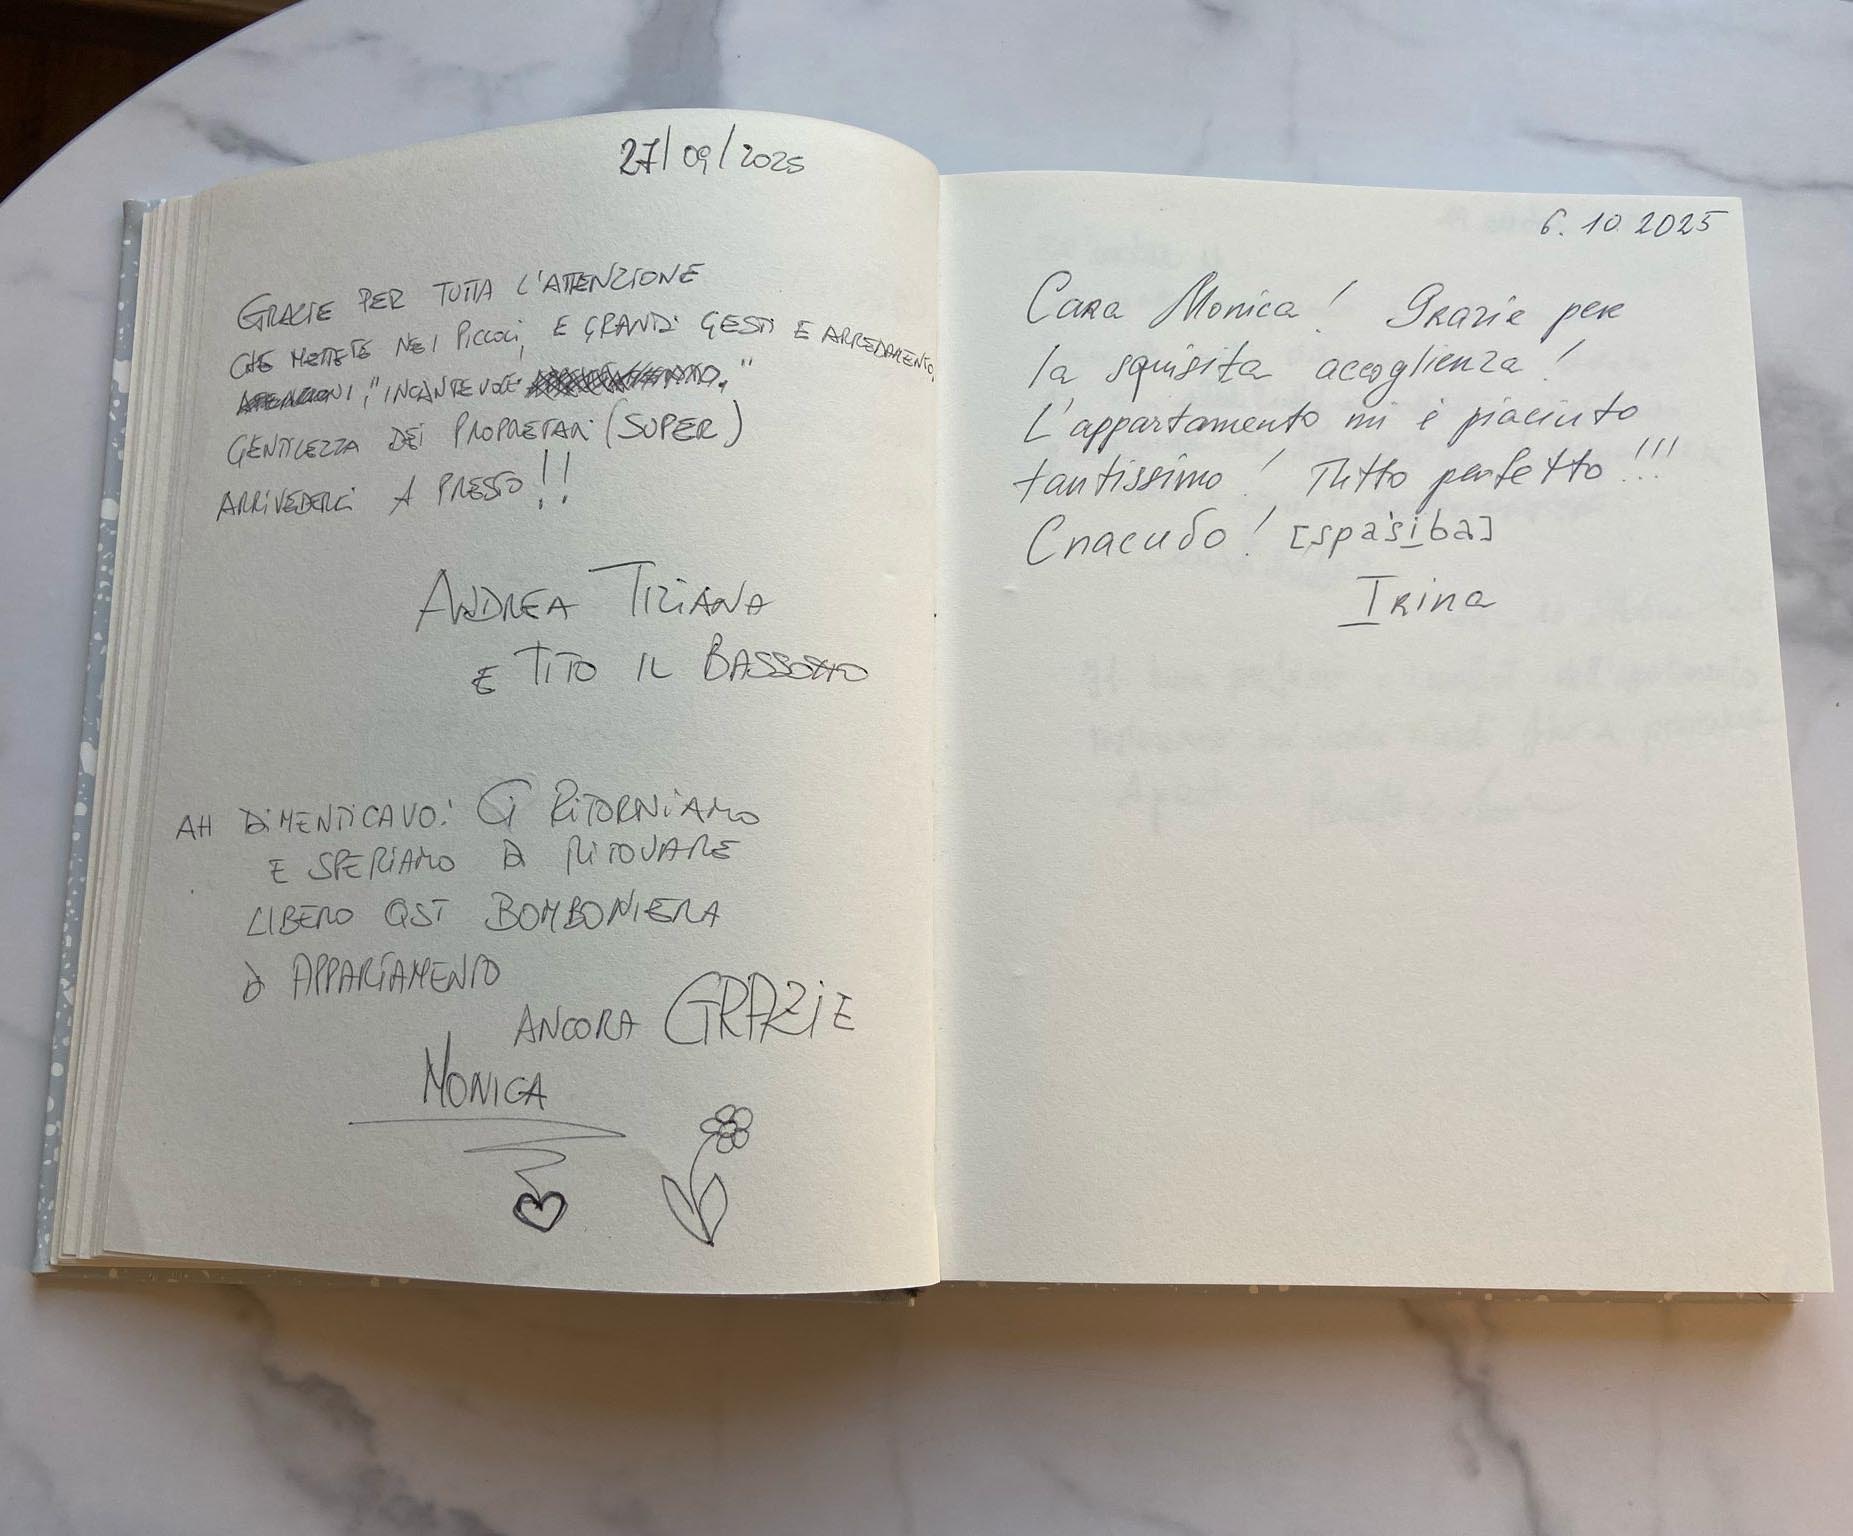 27/09/2025
GRAZIE PER TUTTA L'ATTENZIONE
CHE METTETE NEI PICCOLI, E GRANDI GESTI E ARREDAMENTO,
"INCANTEVOLE "
GENTILEZZA DEI PROPRIETARI (SUPER)
ARRIVEDERCI A PRESTO!!
ANDREA TIZIANA
E TITO IL BASSOTTO
AH DIMENTICAVO! CI RITORNIAMO
E SPERIAMO DI RITOVARE
LIBERO QST BOMBONIERA
DI APPARTAMENTO
ANCORA GRAZIE
MONICA
6.10.2025
Cara Monica! Grazie per
la squisita accoglienza!
L'appartamento mi è piaciuto
tantissimo! Tutto perfetto!!!
Спасибо! [spa'siba]
Irina